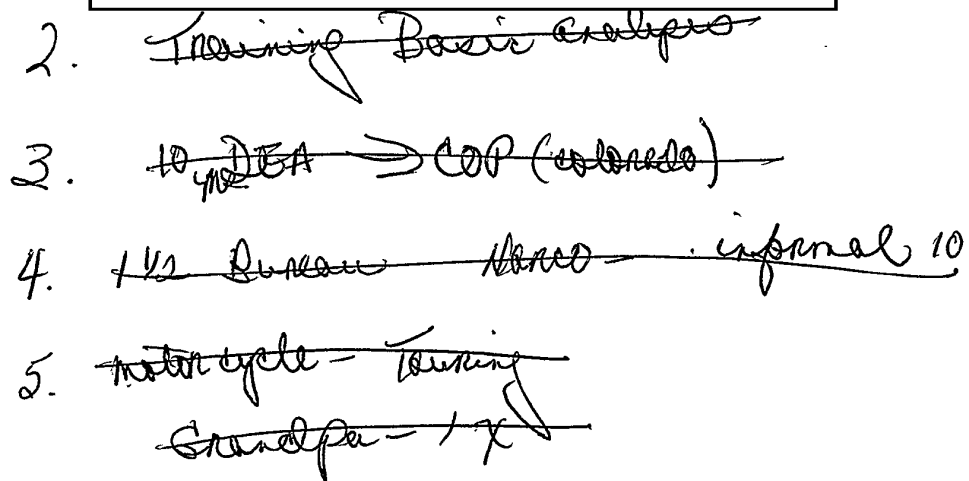 2. Training Basic analysis
3. 10 yrs DEA → COP (colorado)
4. 1 1/2 Bureau Narco - informal 10
5. motorcycle - Touring
Grandpa - 1 X